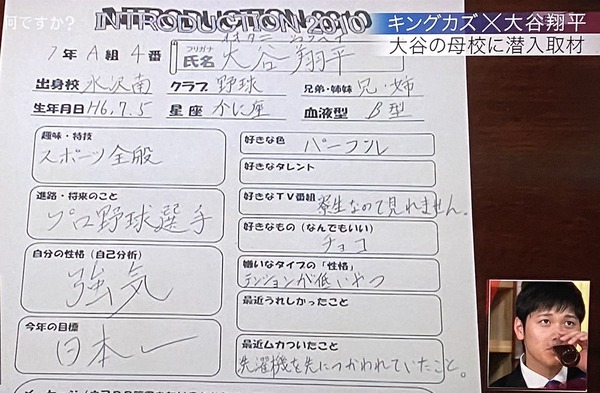 何ですか?
INTRODUCTION 2010
キングカズ×大谷翔平
大谷の母校に潜入取材
1年 A組 4番
フリガナ
氏名 大谷 翔平
出身校 水沢南 クラブ 野球 兄弟・姉妹 兄・姉
生年月日 H6.7.5 星座 かに座 血液型 B型
趣味・特技
スポーツ全般
進路・将来のこと
プロ野球選手
自分の性格(自己分析)
強気
今年の目標
日本一
好きな色
パープル
好きなタレント
好きなTV番組
寮生なので見れません。
好きなもの(なんでもいい)
チョコ
嫌いなタイプの「性格」
テンションが低いやつ
最近うれしかったこと
最近ムカついたこと
洗濯機を先につかわれていたこと。